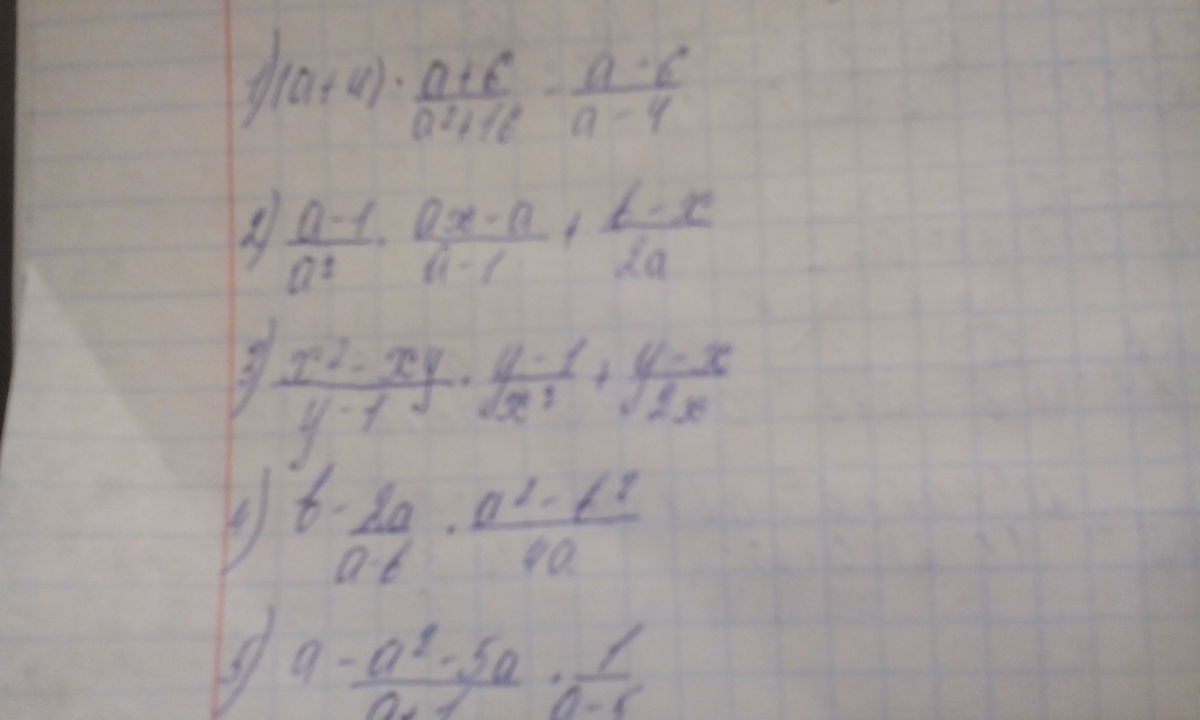 1) (a+4) · (a+6)/(a²+16) - (a-6)/(a-4)
2) (a-1)/a² · (ax-a)/(a-1) + (b-x)/2a
3) (x²-xy)/(y-1) · (y-1)/x² + (y-x)/2x
4) b - 2a/(a-b) · (a²-b²)/4a
5) a - (a²-5a)/(a+1) · 1/(a-5)